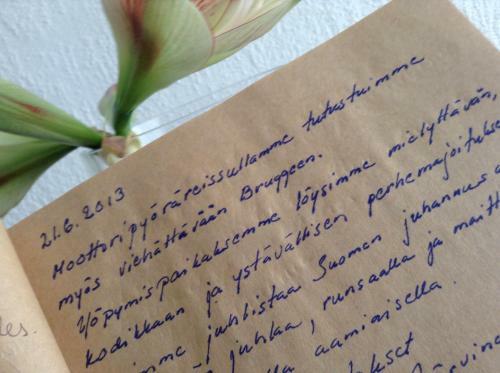 21.6.2013
Moottoripyöräreissullamme tutustuimme
myös viehättävään Bruggeen.
Yöpymispaikaksemme löysimme miellyttävän,
kodikkaan ja ystävällisen perhemajoitukse
imme juhlistaa Suomen juhannusa
juhlaa, runsaalla ja maitt
lla aamiaisella.
kset
Järvine
les.